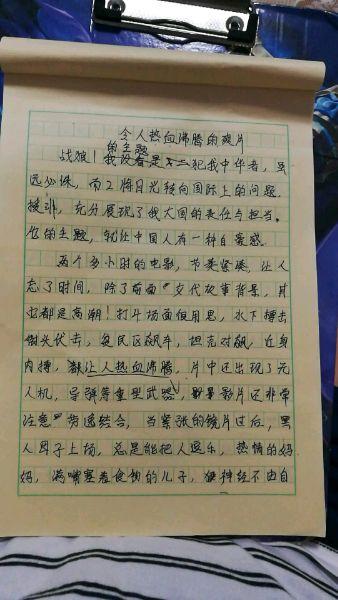 令人热血沸腾的爽片
的主题
战狼1我没看是不二犯我中华者，虽
远必诛，而2将目光转向国际上的问题，
援非，充分展现了我大国的责任与担当。
它的主题，就让中国人有一种自豪感。
两个多小时的电影，节奏紧凑，让人
忘了时间，除了前面交代故事背景，其
它都是高潮！打斗场面很用思，水下搏击
街头伏击，贫民区飙车，坦克对飙，近身
肉搏，都让人热血沸腾，片中还出现了无
人机，导弹等重型武器，影片还非常
注意"劳逸结合，当紧张的镜片过后，黑
人因子上场，总是能把人逗乐，热情的妈
妈，满嘴塞着食物的儿子，神经不由自